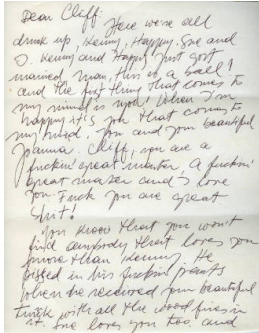 Dear Cliff:
Here we're all
drunk up, Kenny, Happy, Sue and
I. Kenny and Happy just got
married, man, this is a ball!
and the first thing that comes to
my mind is you! When I'm
happy it's you that comes to
my mind. You and your beautiful
Joanna. Cliff, you are a
fuckin' great master. A fuckin'
great master and I love
you. Fuck you are great
shit!
You know that you won't
find anybody that loves you
more than Kenny. He
pissed in his fuckin' pants
when he received your beautiful
trunk with all the wood fires in
it. Sue loves you too, and